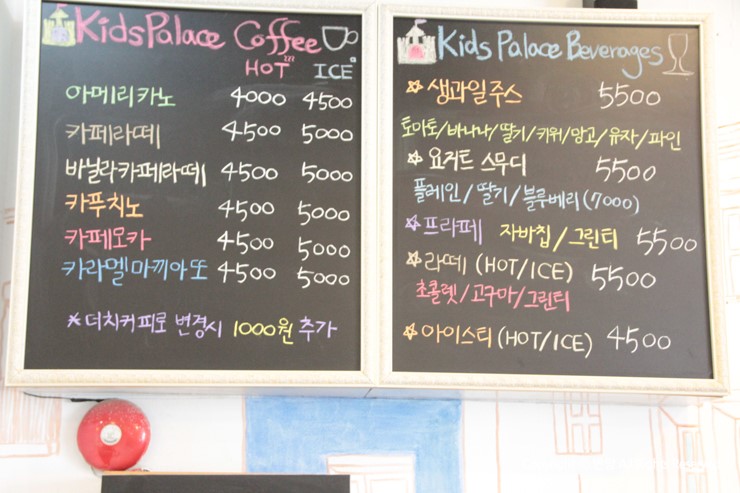 KidsPalace Coffee
HOT ICE
아메리카노 4000 4500
카페라떼 4500 5000
바닐라카페라떼 4500 5000
카푸치노 4500 5000
카페모카 4500 5000
카라멜마끼아또 4500 5000
*더치커피로 변경시 1000원 추가
Kids Palace Beverages
☆생과일주스 5500
토마토/바나나/딸기/키위/망고/유자/파인
☆요거트 스무디 5500
플레인/딸기/블루베리(7000)
☆프라페 자바칩/그린티 5500
☆라떼 (HOT/ICE) 5500
초콜렛/고구마/그린티
☆아이스티(HOT/ICE) 4500